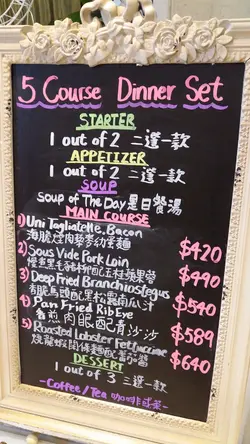 5 Course Dinner Set
STARTER
1 out of 2 二選一款
APPETIZER
1 out of 2 二選一款
SOUP
Soup of The Day 是日餐湯
MAIN COURSE
1) Uni Tagliatelle, Bacon
海胆煙肉
$420
2) Sous Vide Pork Loin
慢煮黑毛豬
$490
3) Deep Fried Branchiostegus
南瓜汁
$540
4) Pan Fried RibEye
香煎肉眼配青沙沙
$589
5) Roasted Lobster Fettuccine
燒龍蝦闊條麵配蕃茄醬
$640
DESSERT
1 out of 3 三選一款
-Coffee/Tea 咖啡或茶-